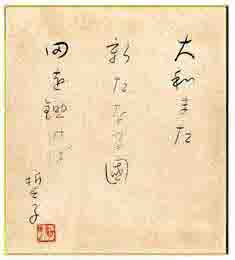 大和また
新たなる國
田を鋤けば
誓子